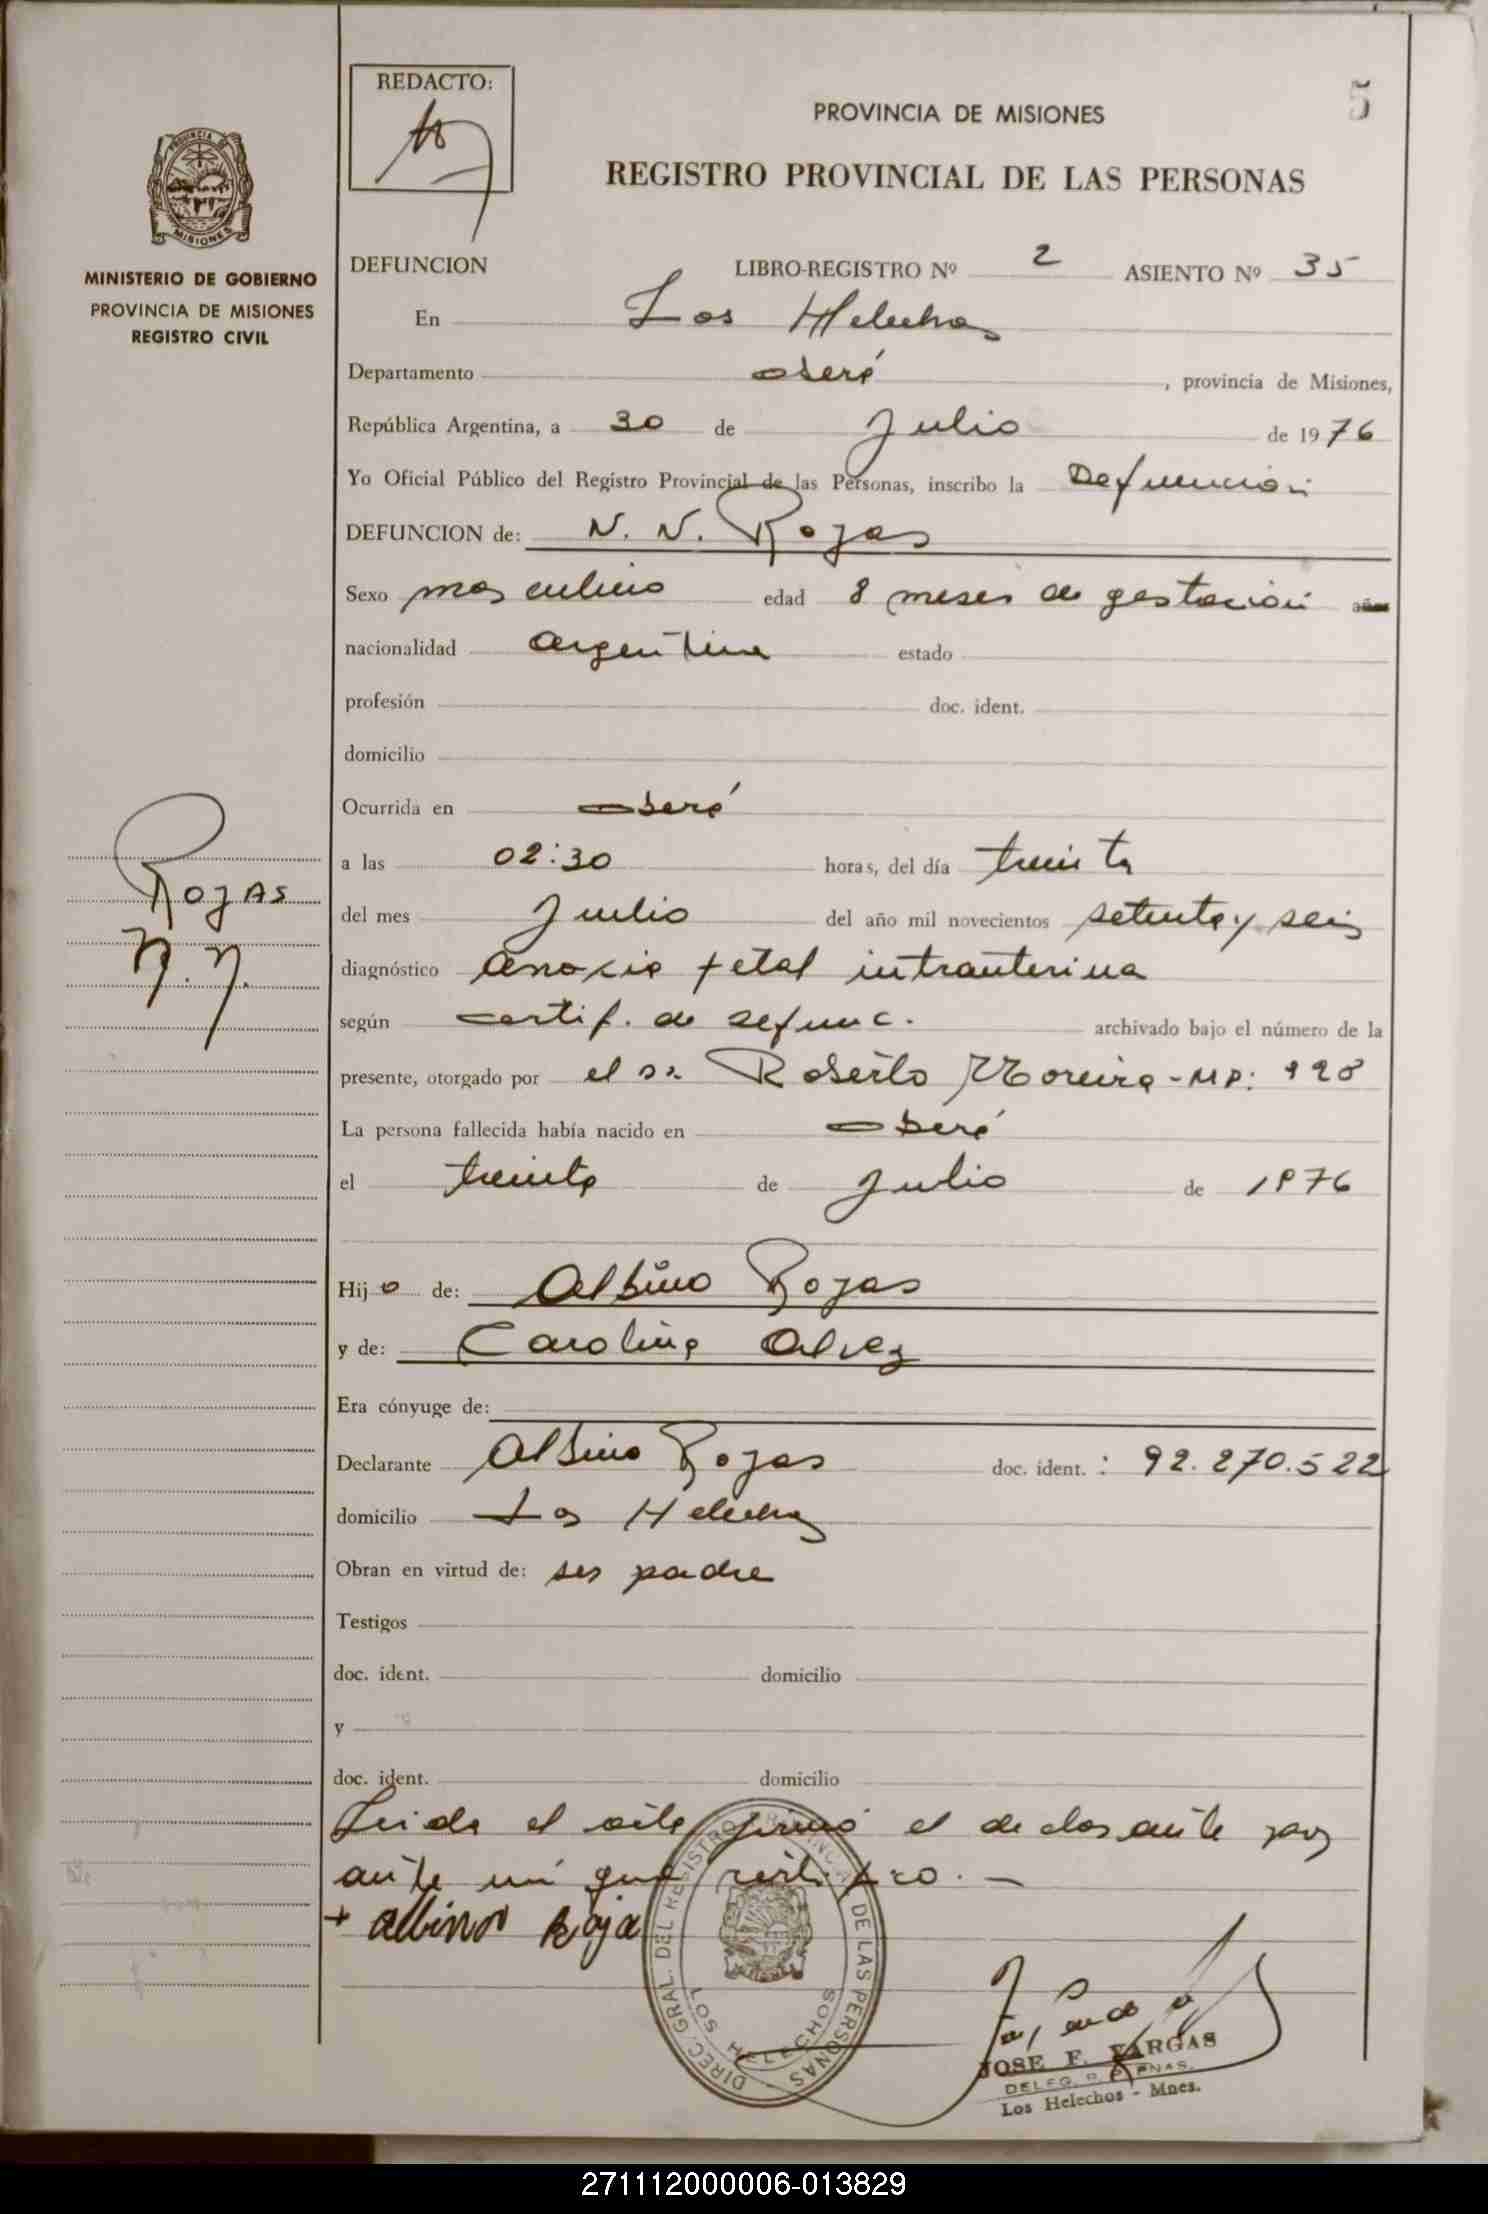 REDACTO:
5
PROVINCIA DE MISIONES
REGISTRO PROVINCIAL DE LAS PERSONAS
PROVINCIA DE MISIONES
MINISTERIO DE GOBIERNO
PROVINCIA DE MISIONES
REGISTRO CIVIL
DEFUNCION LIBRO-REGISTRO Nº 2 ASIENTO Nº 35
En Los Helechos
Departamento Oberá, provincia de Misiones,
República Argentina, a 30 de Julio de 1976
Yo Oficial Público del Registro Provincial de las Personas, inscribo la Defuncion
DEFUNCION de: N. N. Rojas
Sexo masculino edad 8 meses de gestacion años
nacionalidad argentina estado
profesión doc. ident.
domicilio
Ocurrida en Oberá
a las 02:30 horas, del día treinta
del mes Julio del año mil novecientos setenta y seis
diagnóstico anoxia fetal intrauterina
según certif. de defunc. archivado bajo el número de la
presente, otorgado por el Dr. Roberto Moreira - MP: 928
La persona fallecida había nacido en Oberá
el treinta de Julio de 1976
Hijo de: Albino Rojas
y de: Carolina Alvez
Era cónyuge de:
Declarante Albino Rojas doc. ident.: 92.270.522
domicilio Los Helechos
Obran en virtud de: ser padre
Testigos
doc. ident. domicilio
y
doc. ident. domicilio
Leida el acta firmó el declarante por
ante mi que certifico. —
+ albino Roja
ROJAS
N. N.
DIREC. GRAL. DEL REGISTRO PROVINCIAL DE LAS PERSONAS
LOS HELECHOS
JOSE F. VARGAS
Los Helechos - Mnes.
271112000006-013829